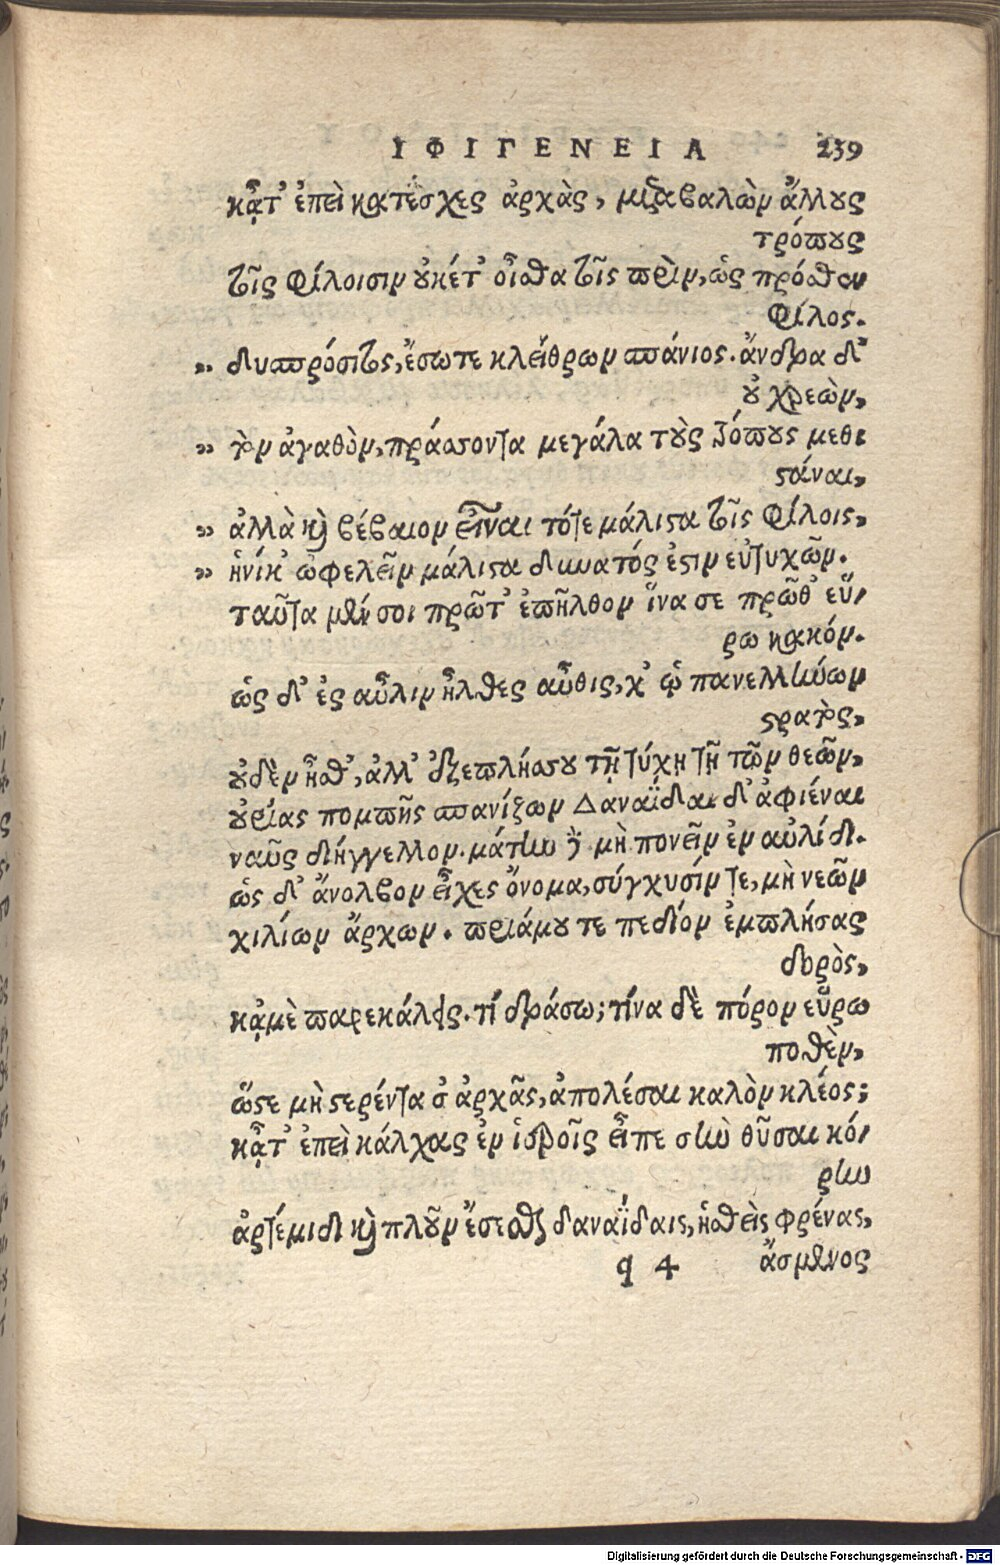 ΙΦΙΓΕΝΕΙΑ 239
κᾆτ' ἐπεὶ κατέσχες ἀρχὰς, μεταβαλὼν ἄλλους
τρόπους
τοῖς φίλοισιν οὐκέτ' οἶσθα τοῖς πρὶν, ὡς πρόσθεν
φίλος.
„ δυσπρόσιτος, ἔσωτε κλείθρων σπάνιος. ἄνδρα δ'
οὐ χρεὼν,
„ τὸν ἀγαθὸν, πράσσοντα μεγάλα τοὺς τόπους μεθι
στάναι,
„ ἀλλὰ καὶ βέβαιον εἶναι τότε μάλιστα τοῖς φίλοις,
„ ἡνίκ' ὠφελεῖν μάλιστα δυνατός ἐστιν εὐτυχῶν.
ταῦτα μέν σοι πρῶτ' ἐπῆλθον ἵνα σε πρῶθ' εὕ/
ρω κακόν.
ὡς δ' ἐς αὖλιν ἦλθες αὖθις, χ' ὡ πανελλήνων
στρατὸς,
οὐδὲν ἦσθ', ἀλλ' ἐξεπλήσσου τῇ τύχῃ τῇ τῶν θεῶν,
οὐρίας πομπῆς σπανίζων Δαναΐδαι δ' ἀφιέναι
ναῦς διήγγελλον. μάτην δὲ μὴ πονεῖν ἐν αὐλίδι.
ὡς δ' ἄνολβον εἶχες ὄνομα, σύγχυσίν τε, μὴ νεῶν
χιλίων ἄρχων. πριάμου τε πεδίον ἐμπλήσας
δορὸς,
κᾀμὲ παρεκάλεις. τί δράσω; τίνα δὲ πόρον εὕρω
ποθὲν,
ὥστε μὴ στερέντα σ' ἀρχᾶς, ἀπολέσαι καλὸν κλέος;
κᾆτ' ἐπεὶ κάλχας ἐν ἱεροῖς εἶπε σὴν θῦσαι κό/
ρην
ἀρτέμιδι καὶ πλοῦν ἔσεσθαι δαναΐδαις, ἡσθεὶς φρένας,
q 4 ἄσμενος
Digitalisierung gefördert durch die Deutsche Forschungsgemeinschaft - DFG